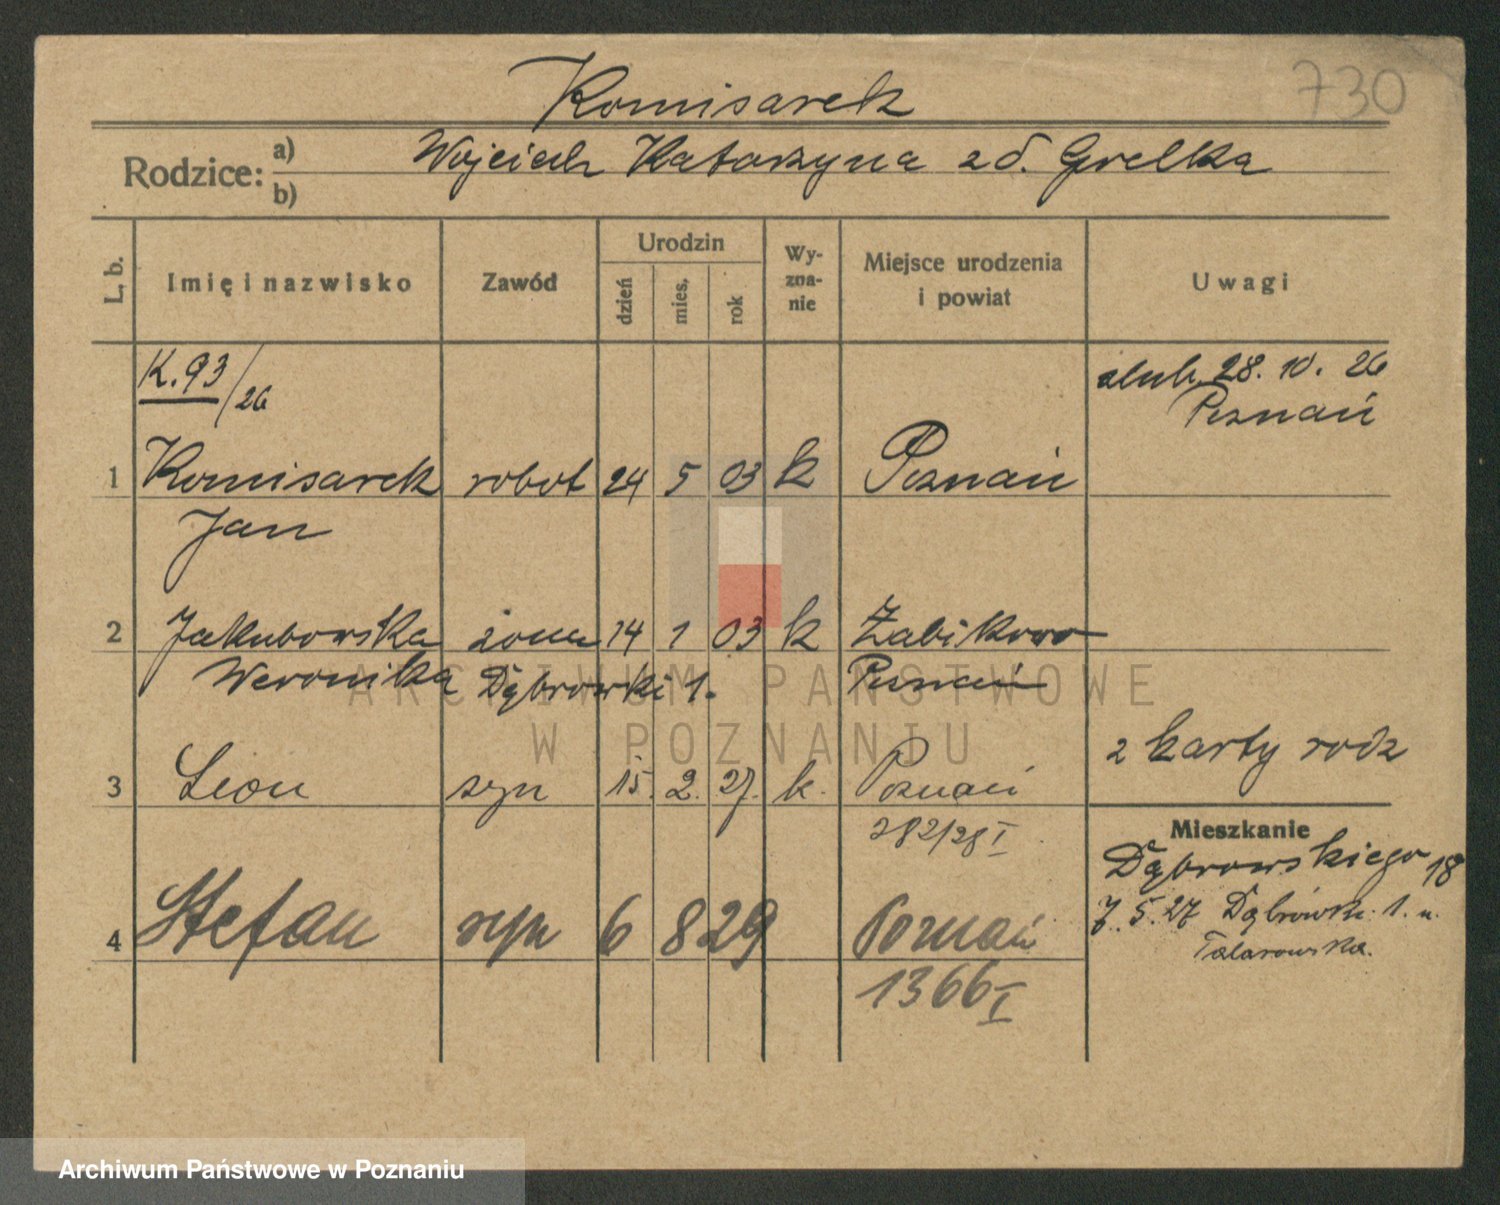 730
Komisarek
Rodzice: a) Wojciech Katarzyna z d. Grelka
b)
L. b. Imię i nazwisko Zawód Urodzin dzień mies. rok Wy-zna-nie Miejsce urodzenia i powiat Uwagi
K. 93/26
ślub. 28. 10. 26
Poznań
1 Komisarek robot 24 5 03 k Poznań
Jan
2 Jakubowska żona 14 1 03 k Żabikowo
Weronika Dąbrowski 1. Poznań
2 karty rodz
3 Leon syn 15. 2. 27. k. Poznań
282/28 I
Mieszkanie
Dąbrowskiego 18
4 Stefan syn 6 8 29 Poznań
7. 5. 27 Dąbrowsk. 1. u.
1366 I
ARCHIWUM PAŃSTWOWE
W POZNANIU
Archiwum Państwowe w Poznaniu